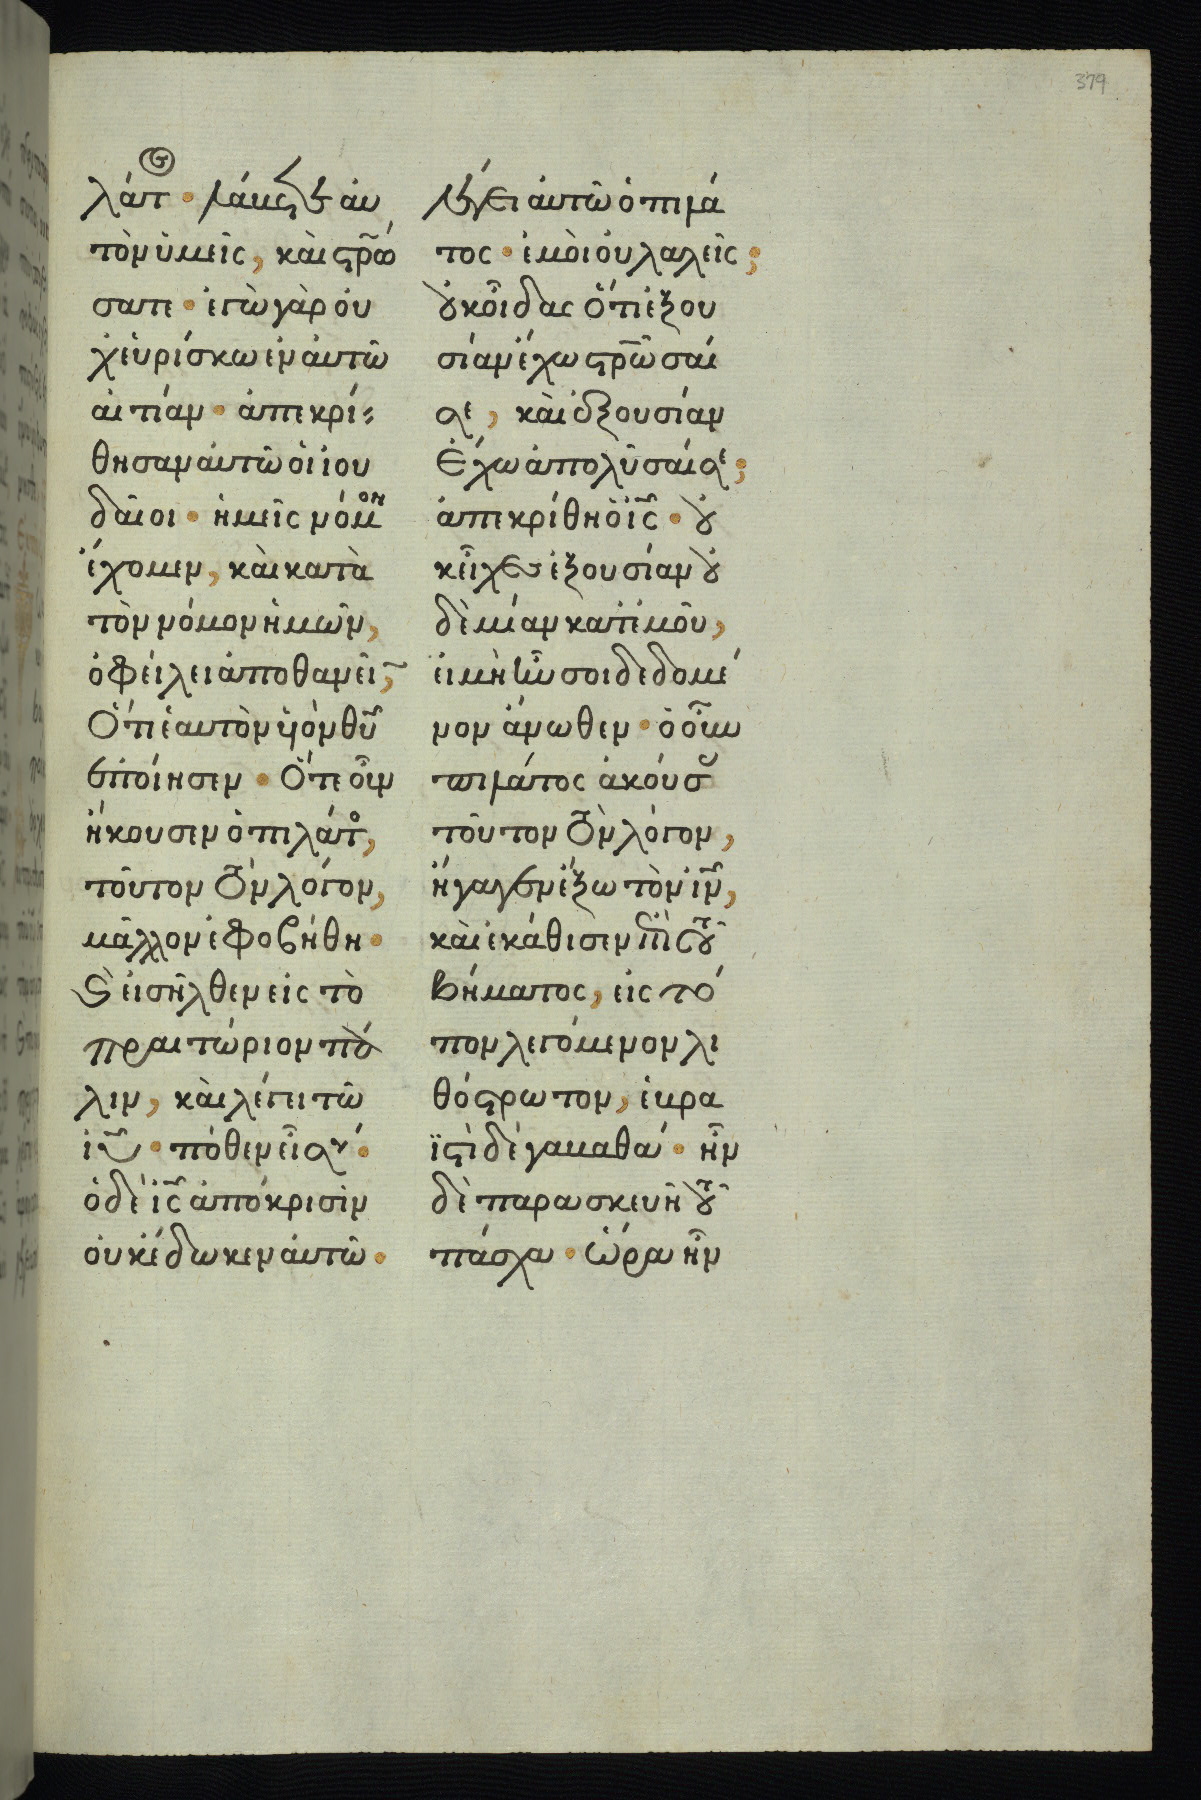 379
λάτος· λάβετε αὐ
τὸν ὑμεῖς, καὶ στρώ
σατε· ἐγὼ γὰρ οὐ
χ εὑρίσκω ἐν αὐτῶ
αἰτίαν· ἀπεκρί
θησαν αὐτῶ οἱ ἰου
δαῖοι· ἡμεῖς νόμον
ἔχομεν, καὶ κατὰ
τὸν νόμον ἡμῶν,
ὀφείλει ἀποθανεῖν,
ὅτι ἑαυτὸν υἱὸν θῦ
ἐποίησεν· ὅτε οὖν
ἤκουσεν ὁ πιλάτος,
τοῦτον τὸν λόγον,
μᾶλλον ἐφοβήθη·
καὶ εἰσῆλθεν εἰς τὸ
πραιτώριον πά
λιν, καὶ λέγει τῶ
ἰῦ· πόθεν εἶ σύ·
ὁ δὲ ἰς ἀπόκρισιν
οὐκ ἔδωκεν αὐτῶ·
λέγει αὐτῶ ὁ πιλά
τος· ἐμοὶ οὐ λαλεῖς;
οὐκ οἶδας ὅτι ἐξου
σίαν ἔχω στρῶσαί
σε, καὶ ἐξουσίαν
ἔχω ἀπολῦσαί σε;
ἀπεκρίθη ὁ ἰς· οὐ
κ εἶχες ἐξουσίαν οὐ
δὲ μίαν κατ' ἐμοῦ,
εἰ μὴ ἦν σοι δεδομέ
νον ἄνωθεν· ὁ οὖν
πιλάτος ἀκούσας
τοῦτον τὸν λόγον,
ἤγαγεν ἔξω τὸν ἰν,
καὶ ἐκάθισεν ἐπὶ τοῦ
βήματος, εἰς τό
πον λεγόμενον λι
θόστρωτον, ἑβρα
ϊστὶ δὲ γαβαθά· ἦν
δὲ παρασκευὴ τοῦ
πάσχα· ὥρα ἦν